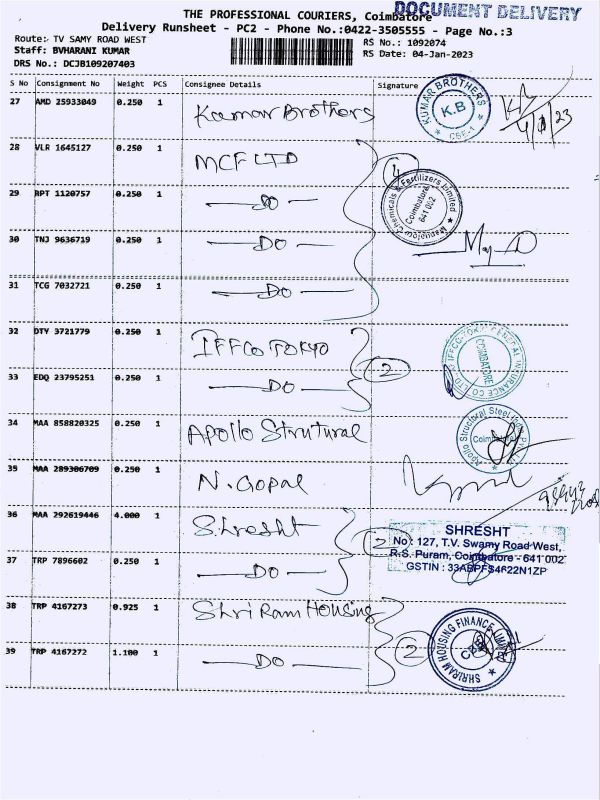 THE PROFESSIONAL COURIERS, Coimbatore
DOCUMENT DELIVERY
Delivery Runsheet - PC2 - Phone No.:0422-3505555 - Page No.:3
Route:- TV SAMY ROAD WEST
RS No.: 1092074
Staff: BVHARANI KUMAR
RS Date: 04-Jan-2023
DRS No.: DCJB109207403
S No Consignment No Weight PCS Consignee Details Signature
27 AMD 25933049 0.250 1 Kumar Brothers
KUMAR BROTHERS
K.B
CBE-1
4/1/23
28 VLR 1645127 0.250 1 MCF LTD
4
29 RPT 1120757 0.250 1 DO
Mangalore Chemicals & Fertilizers Limited
Coimbatore
641 002
30 TNJ 9636719 0.250 1 DO
31 TCG 7032721 0.250 1 DO
32 DTY 3721779 0.250 1 IFFCO TOKYO
2
IFFCO-TOKIO GENERAL INSURANCE CO. LTD.
COIMBATORE
33 EDQ 23795251 0.250 1 DO
34 MAA 858820325 0.250 1 Apollo Strutural
Apollo Structural Steel
Coimbatore
35 MAA 289306709 0.250 1 N. Gopal
36 MAA 292619446 4.000 1 Shresht
2
SHRESHT
No: 127, T.V. Swamy Road West,
R.S. Puram, Coimbatore - 641 002
GSTIN : 33ABPFS4622N1ZP
37 TRP 7896602 0.250 1 DO
38 TRP 4167273 0.925 1 Shri Ram Housing
2
SHRIRAM HOUSING FINANCE LIMITED
CBE
39 TRP 4167272 1.100 1 DO